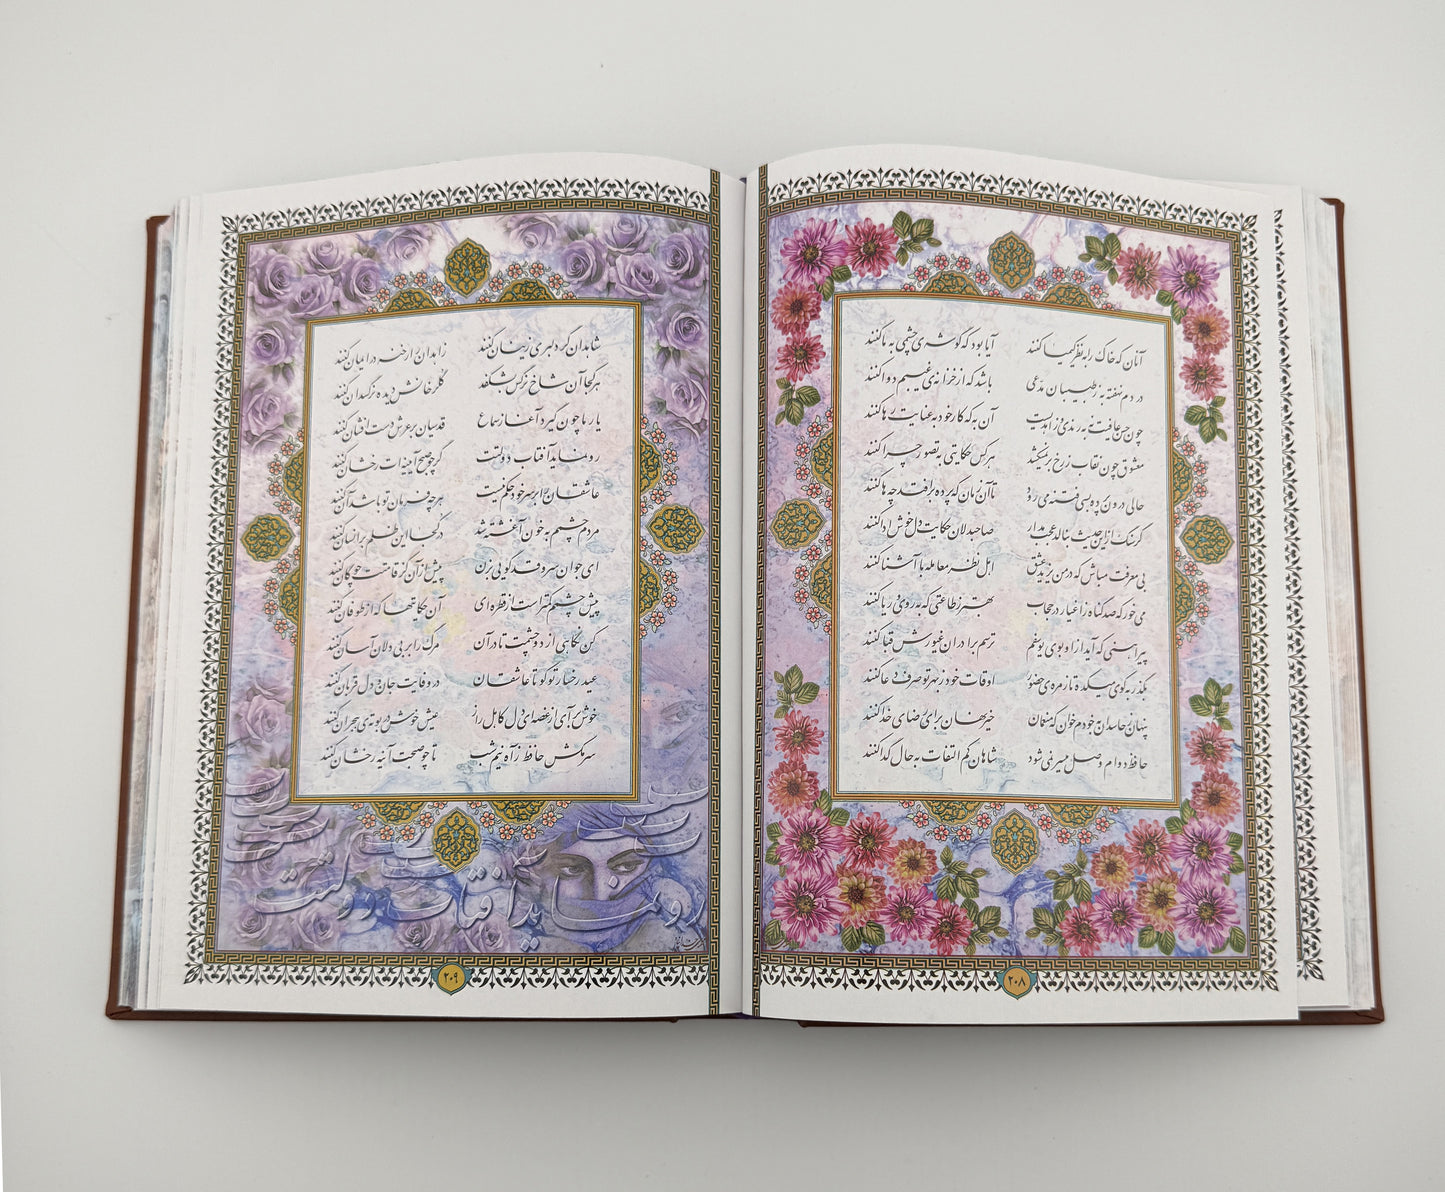 آنان که خاک را به نظر کیمیا کنند آیا بود که گوشه‌ی چشمی به ما کنند
دردم نهفته به ز طبیبان مدعی باشد که از خزانه‌ی غیبم دوا کنند
چون حسن عاقبت نه به رندی و زاهدیست آن به که کار خود به عنایت رها کنند
معشوق چون نقاب ز رخ بر نمیکشد هر کس حکایتی به تصور چرا کنند
حالی درون پرده بسی فتنه می رود تا آن زمان که پرده برافتد چه ها کنند
گر سنگ از این حدیث بنالد عجب مدار صاحبدلان حکایت دل خوش ادا کنند
بی معرفت مباش که در من یزید عشق اهل نظر معامله با آشنا کنند
می خور که صد گناه ز اغیار در حجاب بهتر ز طاعتی که به روی و ریا کنند
پیراهنی که آید از او بوی یوسفم ترسم برادران غیورش قبا کنند
بگذر به کوی میکده تا زمره‌ی حضور اوقات خود ز بهر تو صرف دعا کنند
پنهان ز حاسدان به خودم خوان که منعمان خیر نهان برای رضای خدا کنند
حافظ دوام وصل میسر نمی شود شاهان کم التفات به حال گدا کنند
۲۰۸
شاهدان گر دلبری زینسان کنند زاهدان را رخنه در ایمان کنند
هر کجا آن شاخ نرگس بشکفد گلرخانش دیده نرگسدان کنند
یار ما چون گیرد آغاز سماع قدسیان بر عرش دست افشان کنند
رو نماید آفتاب دولتت گر چو صبح آینه ات رخشان کنند
عاشقان را بر سر خود حکم نیست هر چه فرمان تو باشد آن کنند
مردم چشمم به خون آغشته شد در کجا این ظلم بر انسان کنند
ای جوان سرو قد گویی بزن پیش از آن کز قامتت چوگان کنند
پیش چشمم کمتر است از قطره ای آن حکایتها که از طوفان کنند
کن نگاهی از دو چشمت تا در آن مرگ را بر بی دلان آسان کنند
عید رخسار تو کو تا عاشقان در وفایت جان و دل قربان کنند
خوش برآی از غصه ای دل کاهل راز عیش خوش در بوته‌ی هجران کنند
سر مکش حافظ ز آه نیم شب تا چو صبحت آینه رخشان کنند
رو نماید آفتاب دولتت
۲۰۹